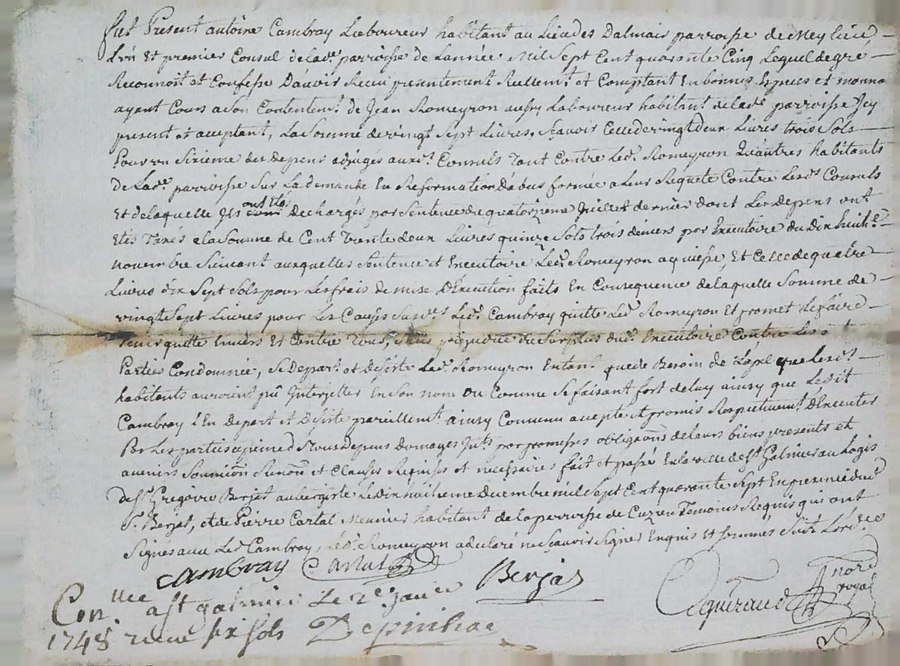 fut Present antoine Cambray Laboureur habitant au Lieu des Dalmais parroisse de Meylieu
L'un Et premier Consul de lad. parroisse de L'année Mil Sept Cent quarante Cinq Lequel de gré
Reconnoit et Confesse D'avoir Receu presentement Reellement et Comptant En bonnes Especes et monno
ayant Cours a son Contentemt. de Jean Romeyron aussy Laboureur habitant de lade. parroisse Icy
present et acceptant, La Somme de vingt Sept Livres, Sçavoir Celle de vingt deux Livres trois Sols
pour un Sixieme des depens adjugés auxd. Consuls tant Contre Led. Romeyron qu'autres habitants
de Lad. parroisse Sur La demande En Reformation D'abus formée a Leur Requete Contre Lesd. Consuls
Et de laquelle Ils ont Etés Dechargés par Sentence du quatorzieme Juillet dernier dont Les Depens ont
Etés Taxés a la Somme de Cent Trente deux Livres quinze Sols trois deniers par Executoire du Dix huite.
novembre Suivant auxquelles Sentence et Executoire Led. Romeyron acquiesse, Et Celle de quatre
Livres dix Sept Sols pour Les frais de mise D'Execution faits En Consequence de laquelle Somme de
vingt Sept Livres pour Les Causes Susd. Led. Cambray quitte Led. Romeyron Et promet Le faire
tenir quitte Envers et Contre Tous, Sans prejudice du Surplus dud. Executoire Contre Les
Parties Condamnée, Se Depart et desiste Led. Romeyron Entant que de Besoin de L'apel que Lesd.
habitants auroient pû Interjetter En Son nom ou Comme Se faisant fort de luy ainsy que Ledit
Cambray S'En Depart et Desiste pareillemt. ainsy Convenu accepté et promis Respectivemt. D'Executer
Par Les parties a peine de Tous Depens Domages Jnts. par promesses obligaons. de Leurs biens presents et
avenirs Soumission Renon. et Clauses Requises et necessaires fait et passé En la ville de St. Galmier au Logis
de Sr. Gregoire Berjat aubergiste Le dix neuvieme decembre mil Sept Cent quarante Sept En presence dud.
Sr. Berjat, et de Pierre Carlat Meunier habitant de la parroisse de Cuzieu temoins Requis qui ont
Signé avec Led. Cambray, Led. Romeyron a declaré ne Scavoir Signer Enquis et Sommé Suivt. Lordce.
Cambray Carlat Berjat
nore royal
Con.llee a st galmier Le 2e janvier
1748 receu six sols